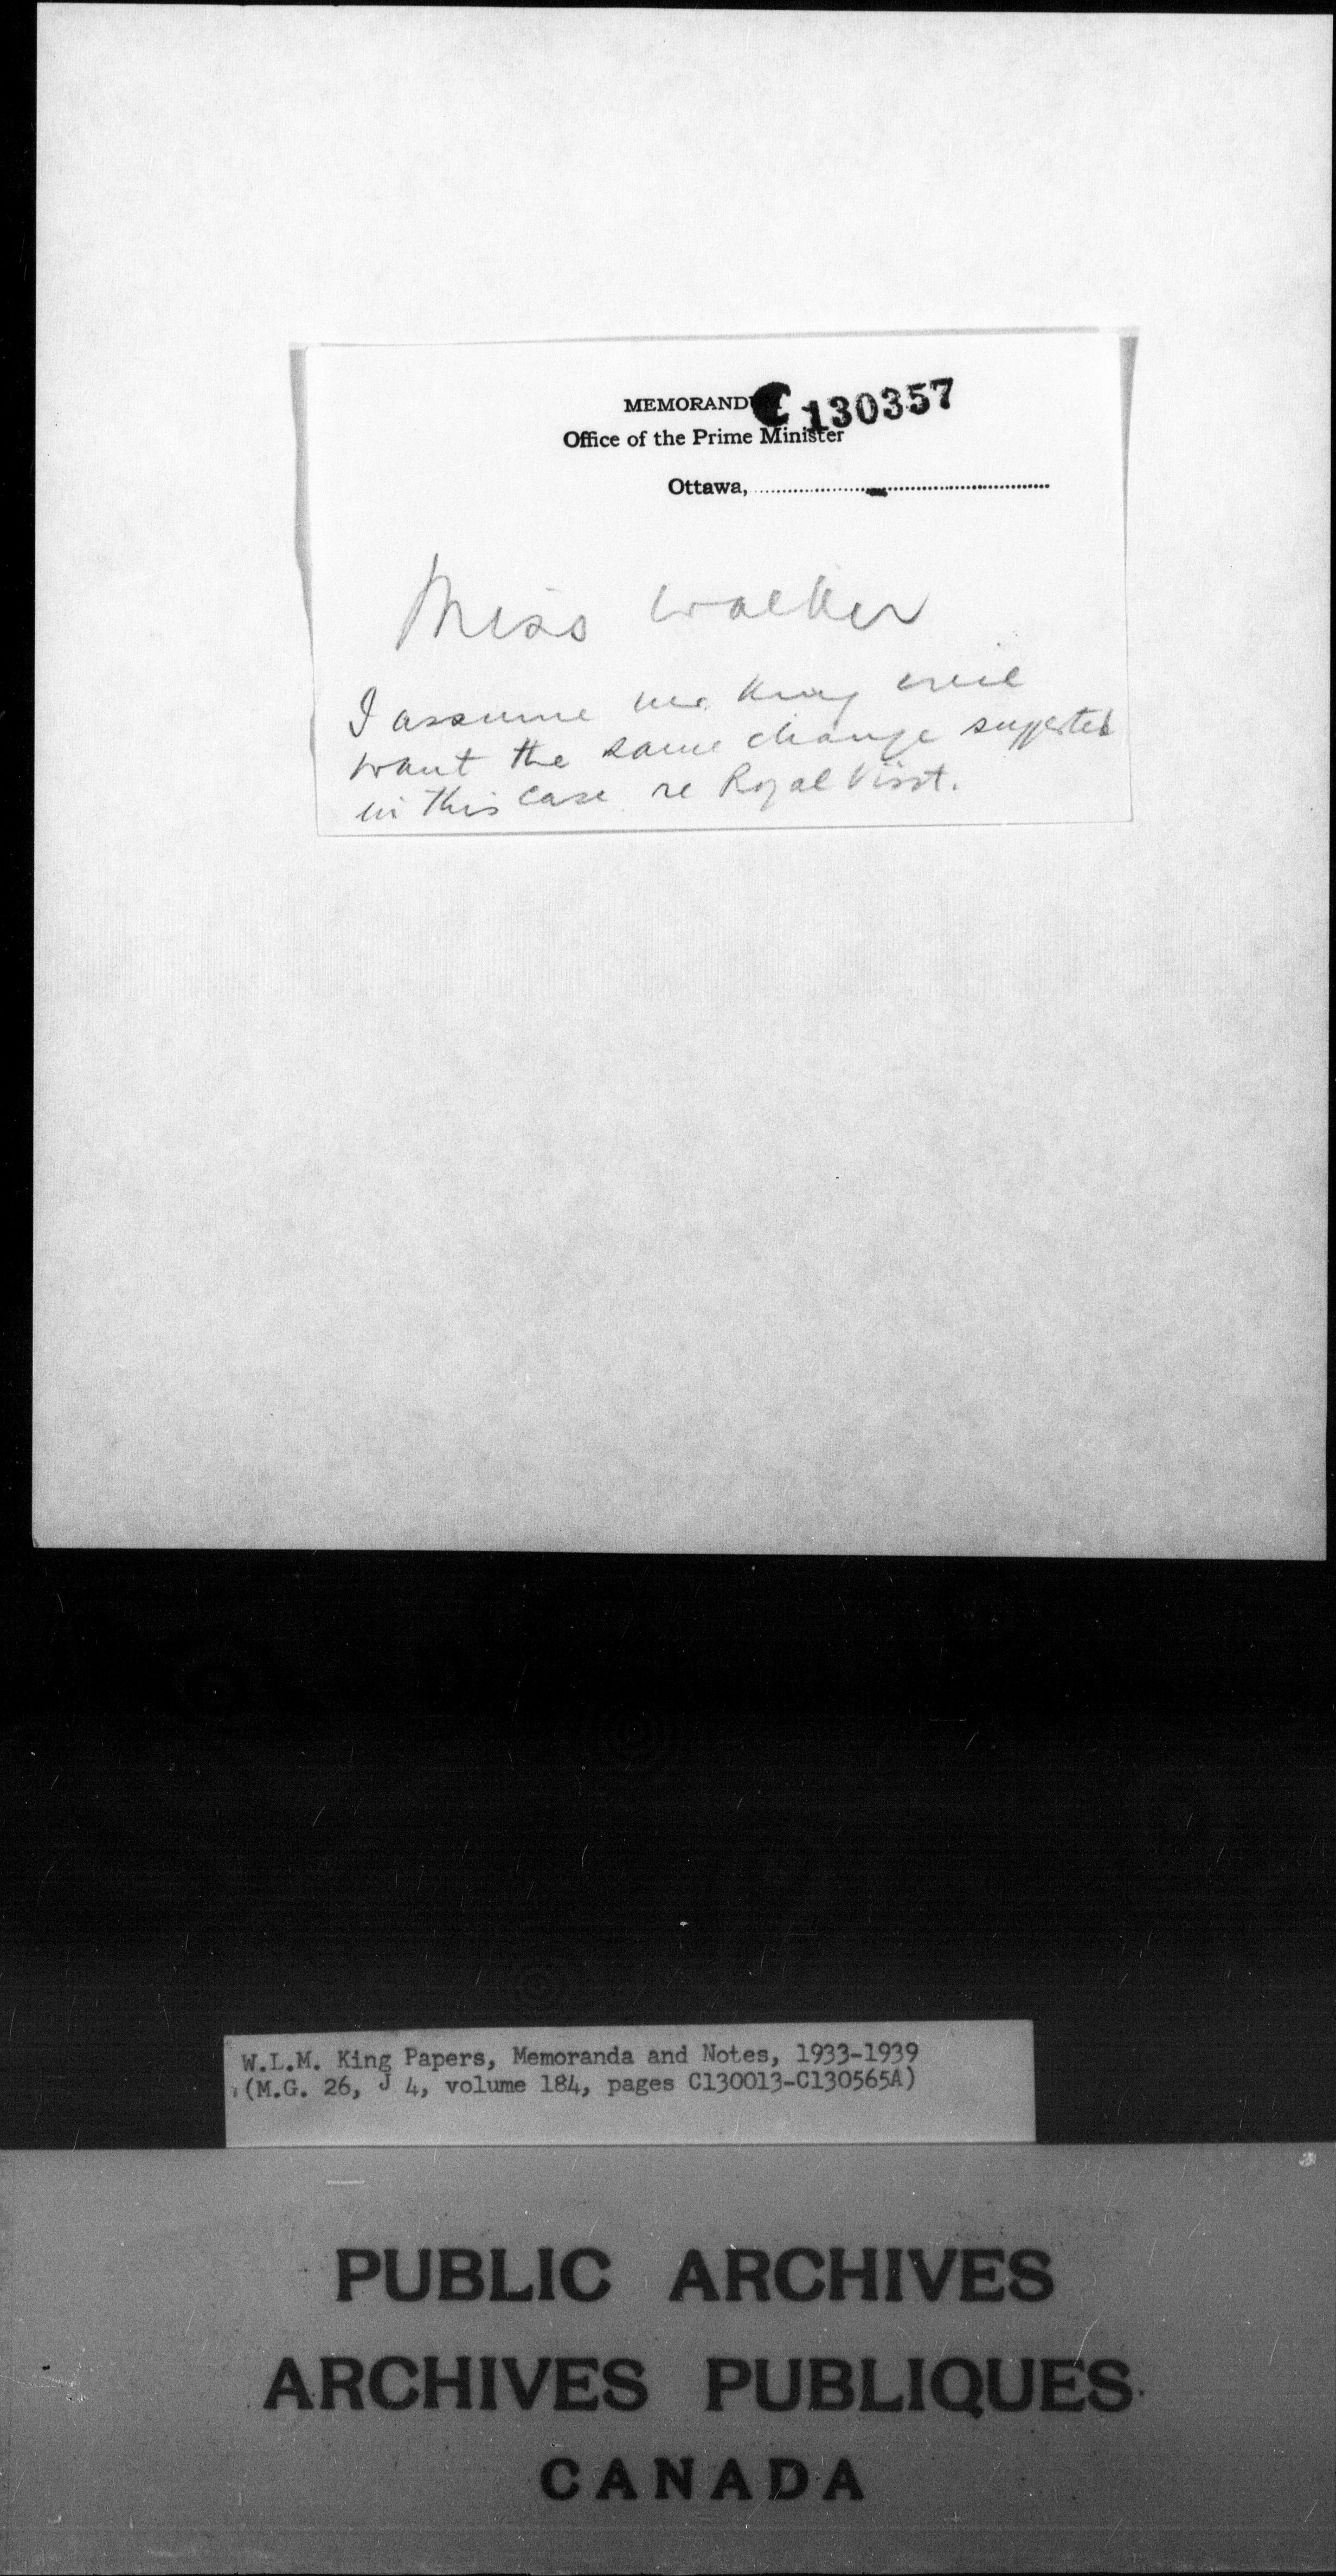 MEMORANDUM
C130357
Office of the Prime Minister
Ottawa,
Miss Walker
I assume Mr. King will
want the same change suggested
in this case re Royal Visit.
W.L.M. King Papers, Memoranda and Notes, 1933-1939
(M.G. 26, J 4, volume 184, pages C130013-C130565A)
PUBLIC ARCHIVES
ARCHIVES PUBLIQUES
CANADA